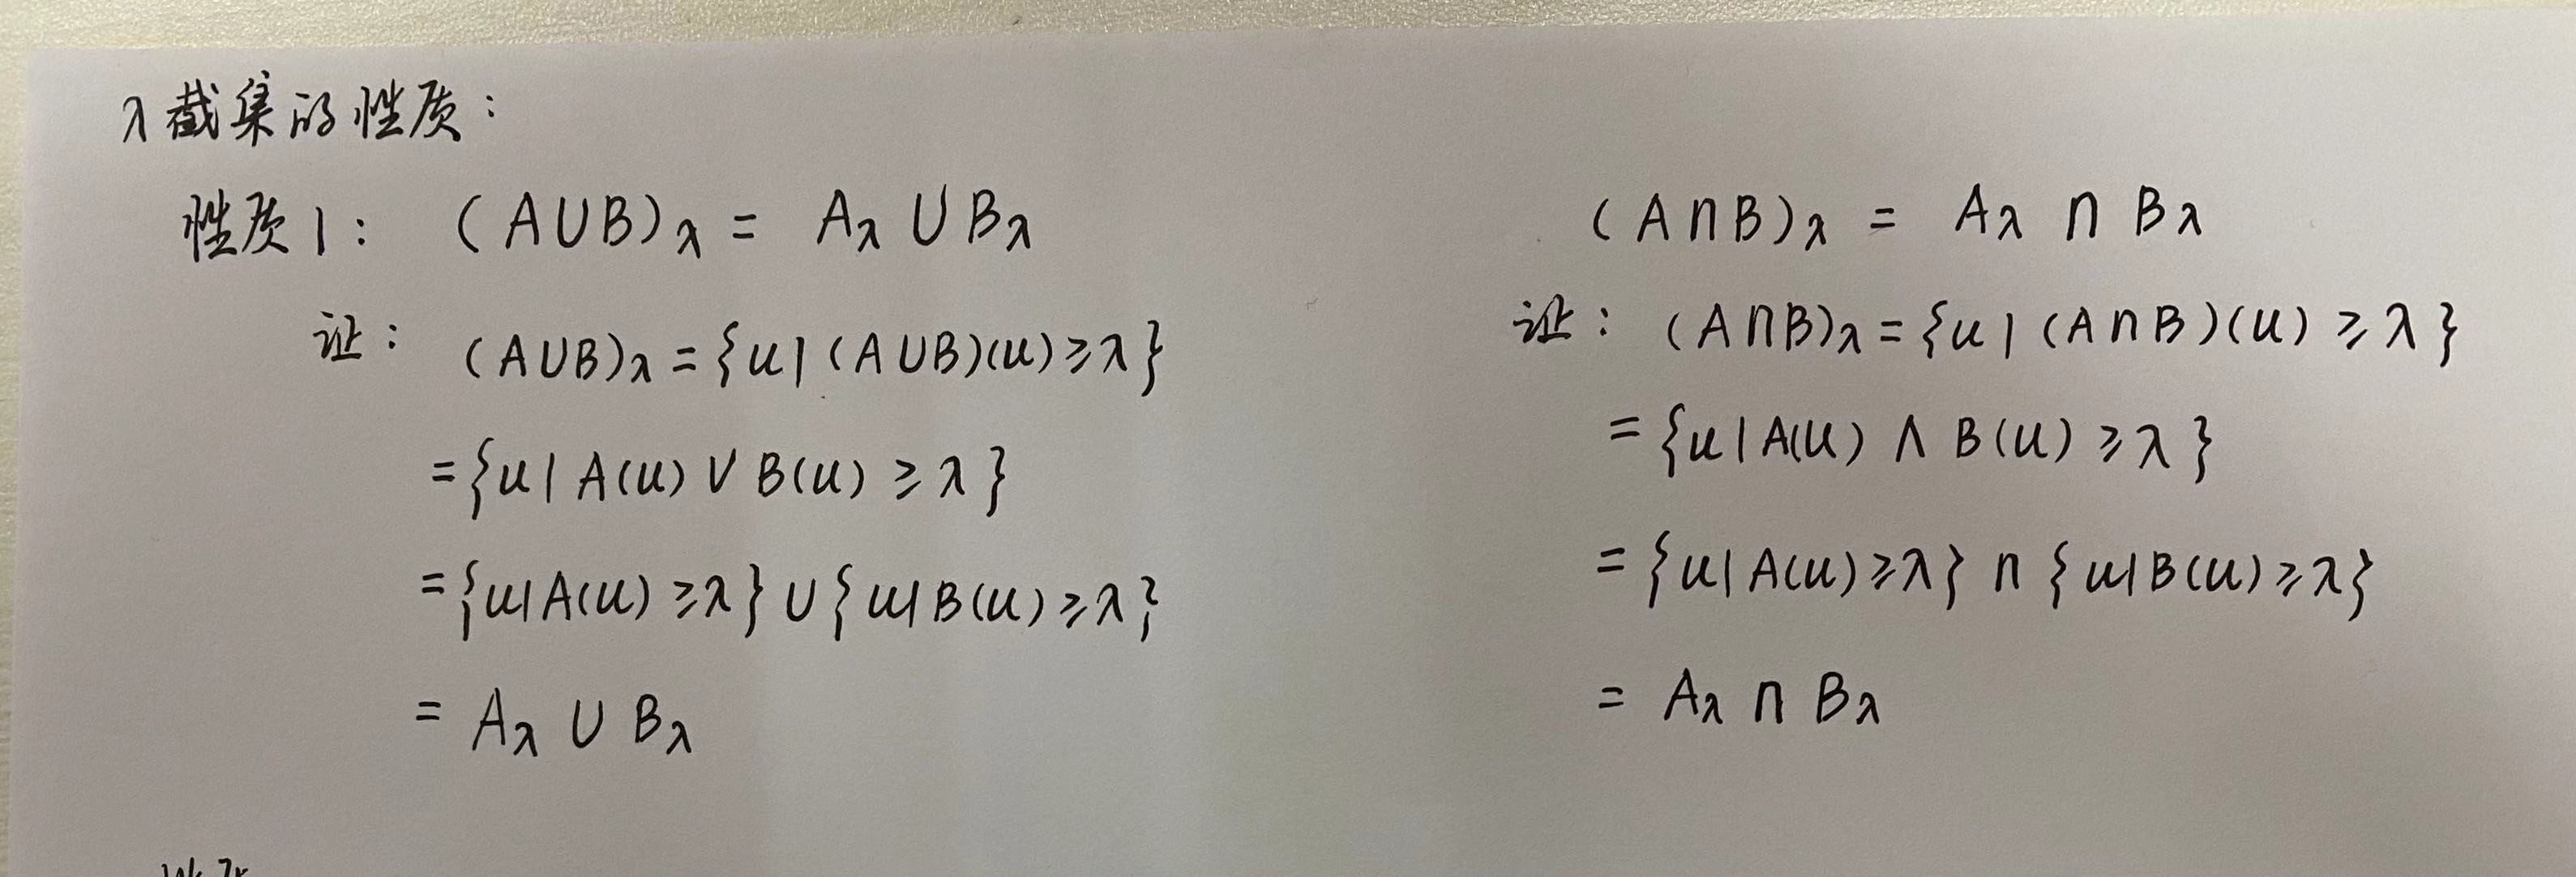 λ截集的性质：
性质1： (A∪B)λ = Aλ ∪ Bλ
证： (A∪B)λ = {u | (A∪B)(u) ≥ λ}
= {u | A(u) ∨ B(u) ≥ λ}
= {u | A(u) ≥ λ} ∪ {u | B(u) ≥ λ}
= Aλ ∪ Bλ
(A∩B)λ = Aλ ∩ Bλ
证： (A∩B)λ = {u | (A∩B)(u) ≥ λ}
= {u | A(u) ∧ B(u) ≥ λ}
= {u | A(u) ≥ λ} ∩ {u | B(u) ≥ λ}
= Aλ ∩ Bλ